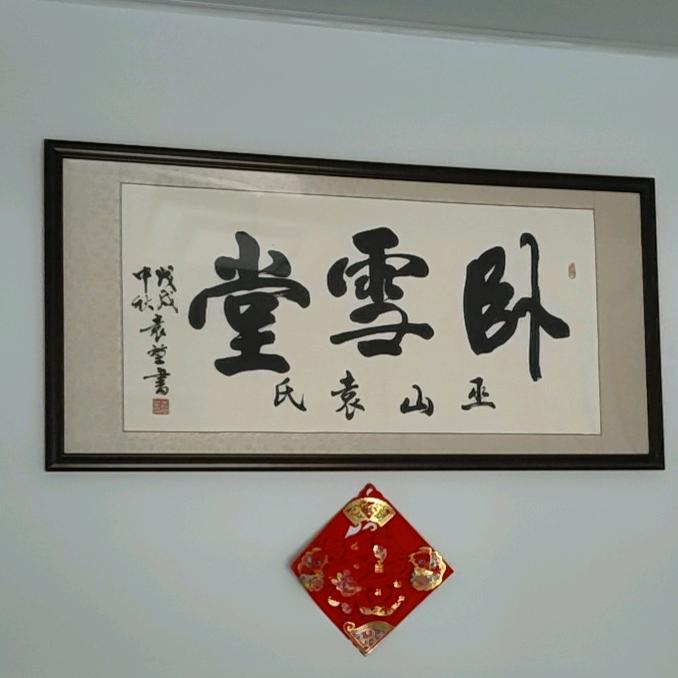 卧雪堂
巫山袁氏
戊戌
中秋袁堃書